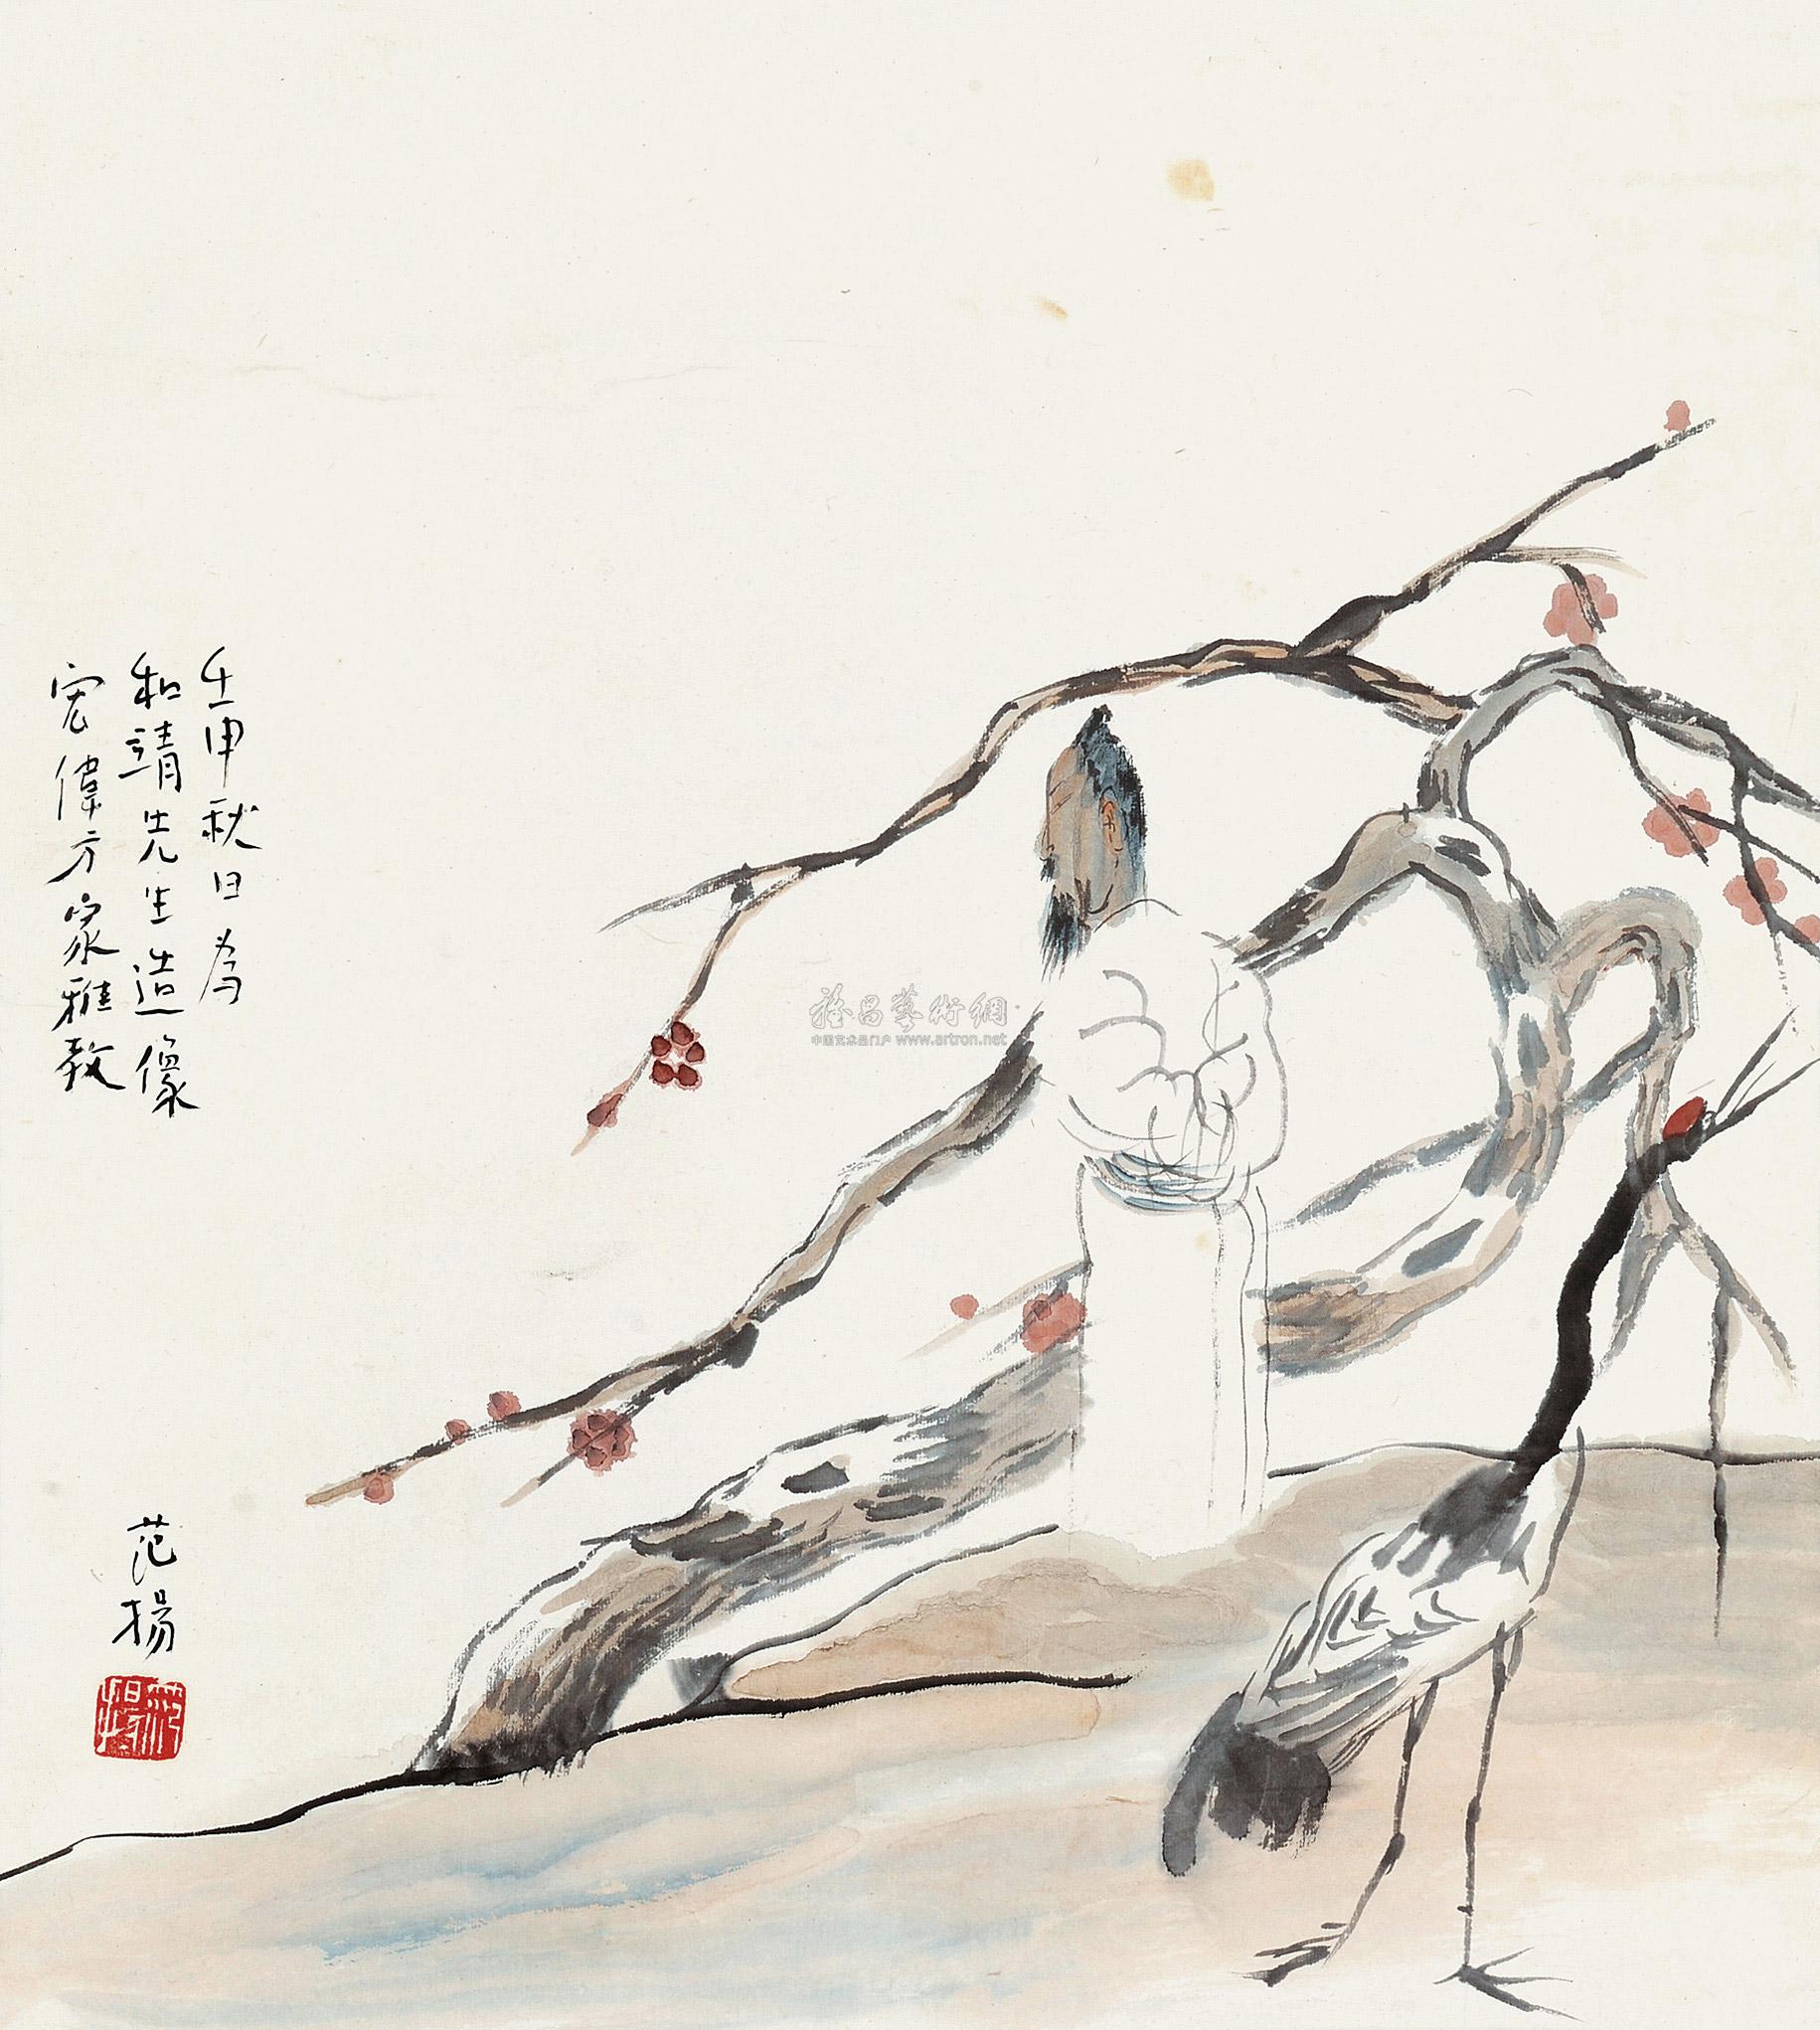 壬申秋日為
和靖先生造像
宏偉方家雅教
范揚
范揚
雅昌藝術網
中国艺术品门户 www.artron.net